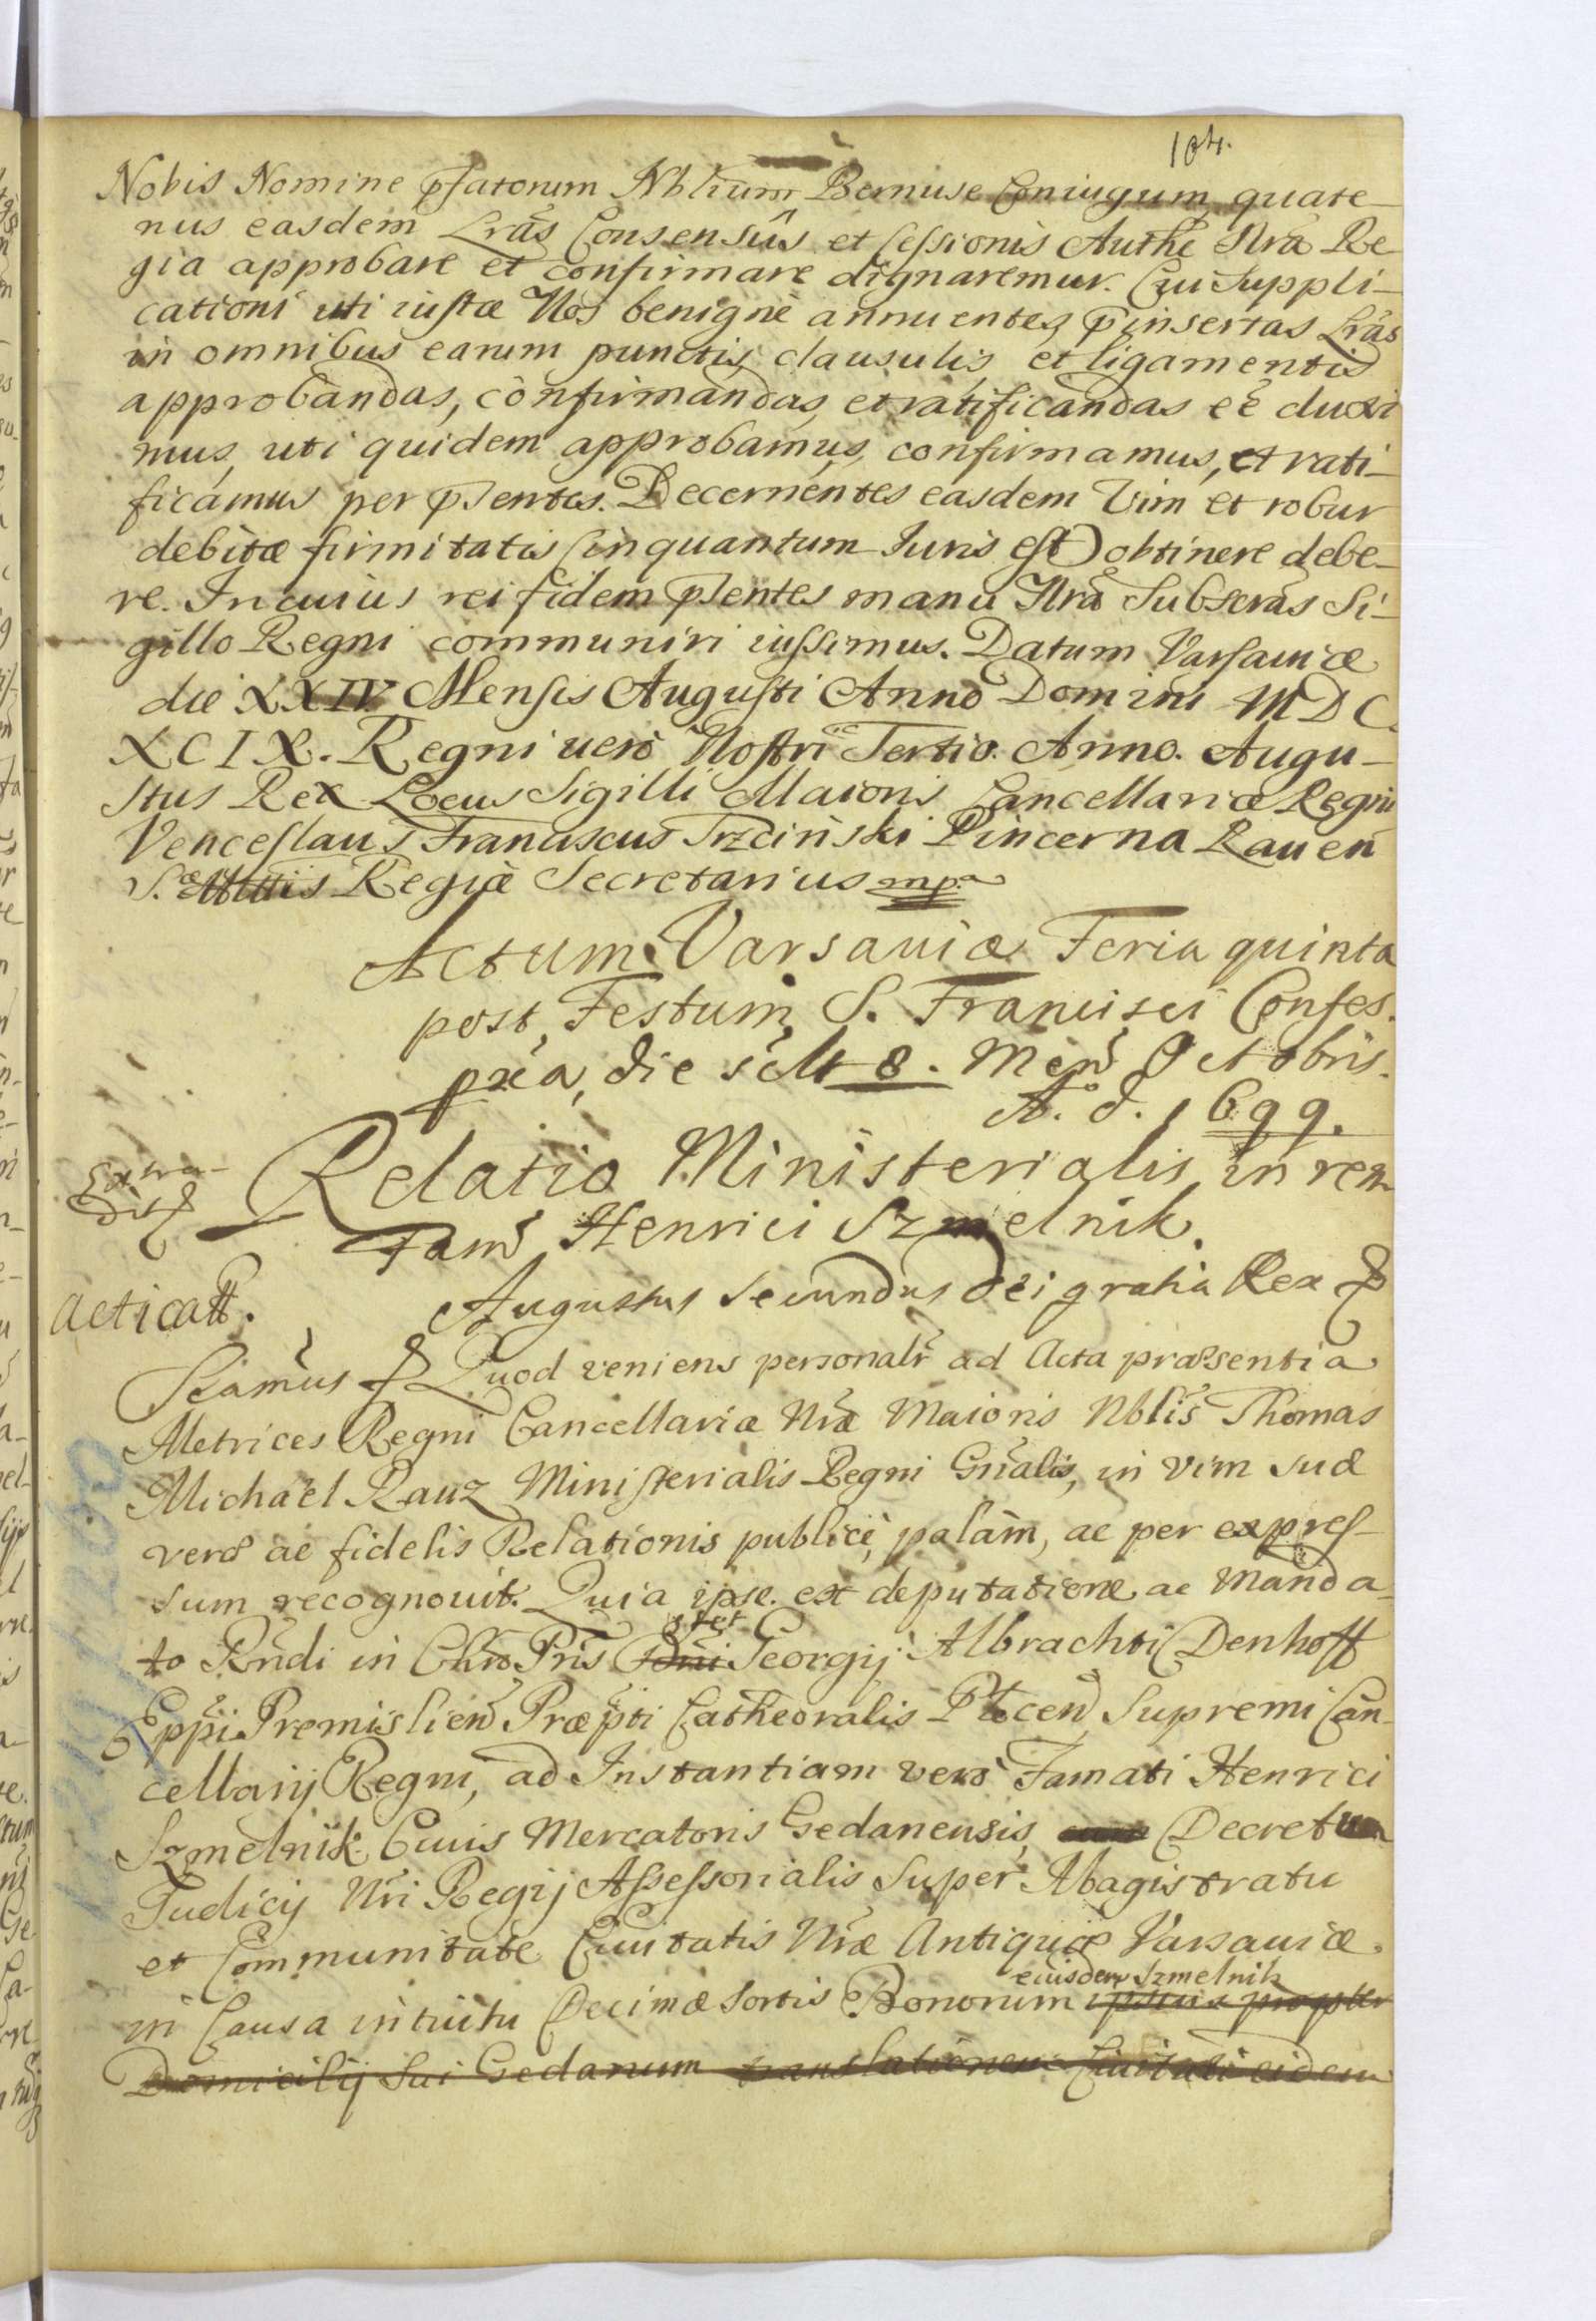 104.
Nobis Nomine pfatorum Nblium Bernuse Coniugum, quate-
nus easdem Lras Consensus et Cessionis Authe Nra Re
gia approbare et confirmare dignaremur. Cui Suppli-
cationi uti iustæ Nos benigne annuentes, pinsertas Lras
in omnibus earum punctis, clausulis, et ligamentis
approbandas, confirmandas, et ratificandas eẽ duxi
mus, uti quidem approbamus, confirmamus, et rati-
ficamus per psentes. Decernentes easdem Vim et robur
debitæ firmitatis (in quantum Iuris est) obtinere debe-
re. In cuius rei fidem psentes manu Nra Subscras Si-
gillo Regni communiri iussimus. Datum Varsauiæ
die XXIV Mensis Augusti Anno Domini MDC.
XCIX. Regni uero Nostri Tertio Anno. Augu-
stus Rex Locus Sigilli Maioris Cancellariæ Regni
Venceslaus Franciscus Trzciński Pincerna Rauen
S. Mttis Regiæ Secretarius mpa
Actum Varsauiæ Feria quinta
post Festum S. Francisci Confes.
pxia, die sclt 8. Mens Octobris.
A. d. 1699.
Extra-
dit
Relatio Ministerialis in rem
Fam Henrici Szmelnik.
Acticatt.
Augustus Secundus Dei gratia Rex
Scamus Quod veniens personalr ad Acta præsentia
Metrices Regni Cancellariæ Nræ Maioris Nblis Thomas
Michael Rauz Ministerialis Regni Gnalis, in vim suæ
veræ ac fidelis Relationis publice, palam, ac per expres-
sum recognouit. Quia ipse ex deputatione ac Manda-
to Rndi in Chro Pris Dni Georgij Albrachti Denhoff
Eppi Premislien Præpti Cathedralis Plocen Supremi Can-
cellarij Regni, ad Instantiam vero Famati Henrici
Szmelnik Ciuis Mercatoris Gedanensis, Decretum
Iudicij Nri Regij Assessorialis Super Magistratu
et Communitate Ciuitatis Nræ Antiquæ Varsauiæ
eiusdem Szmelnik
in Causa intuitu Decimæ Sortis Bonorum ipsius propter
Domicilij Sui Gedanum translationem Ciuitati eidem